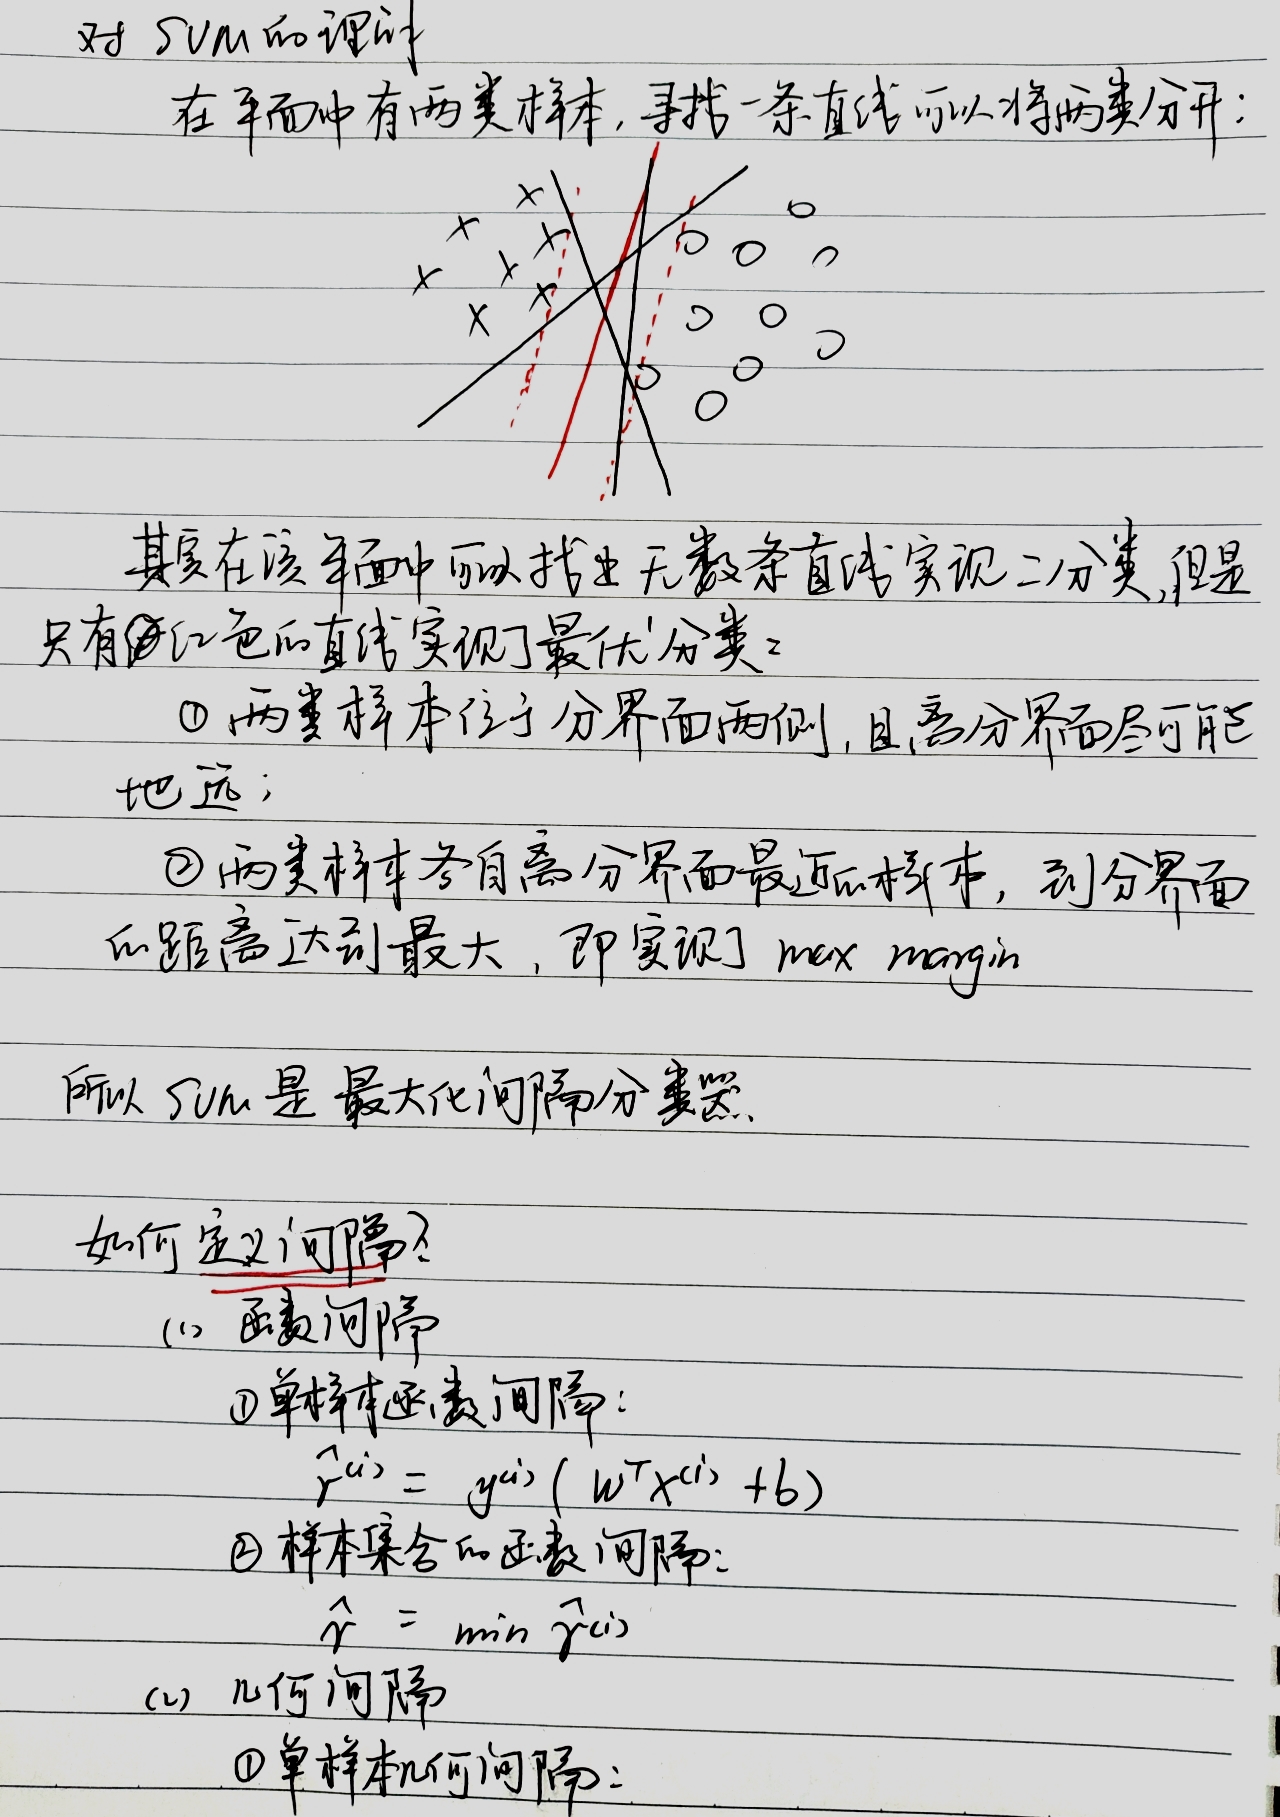 对 SVM 的理解
在平面中有两类样本,寻找一条直线可以将两类分开:
其实在该平面中可以找出无数条直线实现二分类,但是
只有红色的直线实现了最优分类:
① 两类样本位于分界面两侧,且离分界面尽可能
地远;
② 两类样本各自离分界面最近的样本,到分界面
的距离达到最大,即实现了 max margin
所以 SVM 是最大化间隔分类器.
如何定义间隔?
(1) 函数间隔
① 单样本函数间隔:
γ̂⁽ⁱ⁾ = y⁽ⁱ⁾ ( wᵀx⁽ⁱ⁾ + b )
② 样本集合的函数间隔:
γ̂ = min γ̂⁽ⁱ⁾
(2) 几何间隔
① 单样本几何间隔: